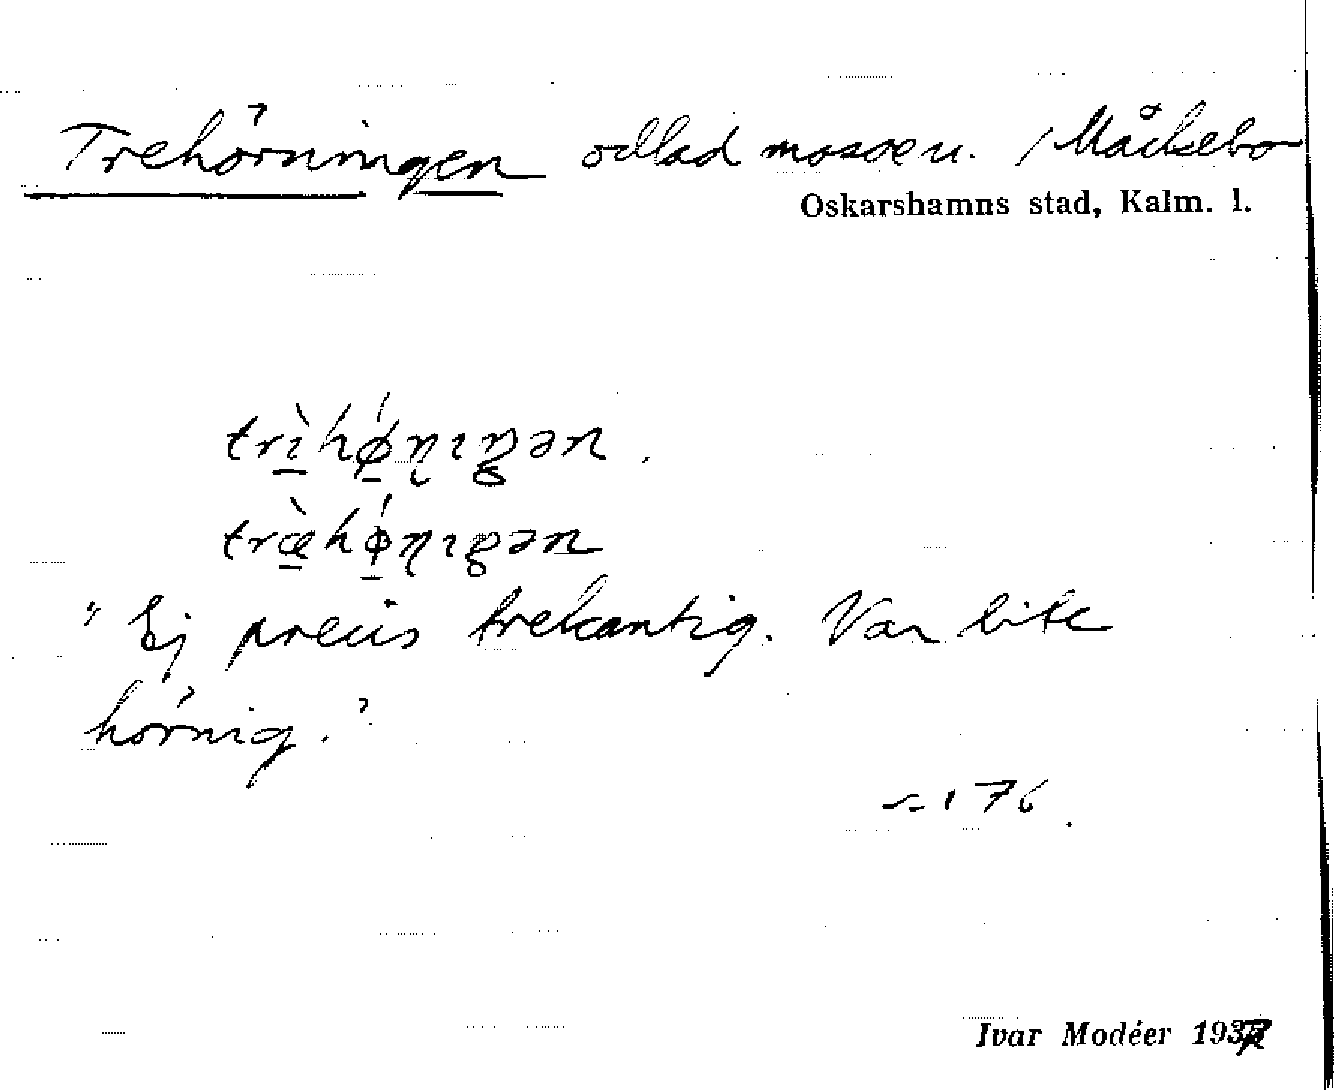 Trehörningen odlad mossen. / Måckebo
Oskarshamns stad, Kalm. l.
trìhǿɳıŋən.
træ̀hǿɳıŋən
"Ej precis trekantig. Var lite
hörnig."
176.
Ivar Modéer 1937